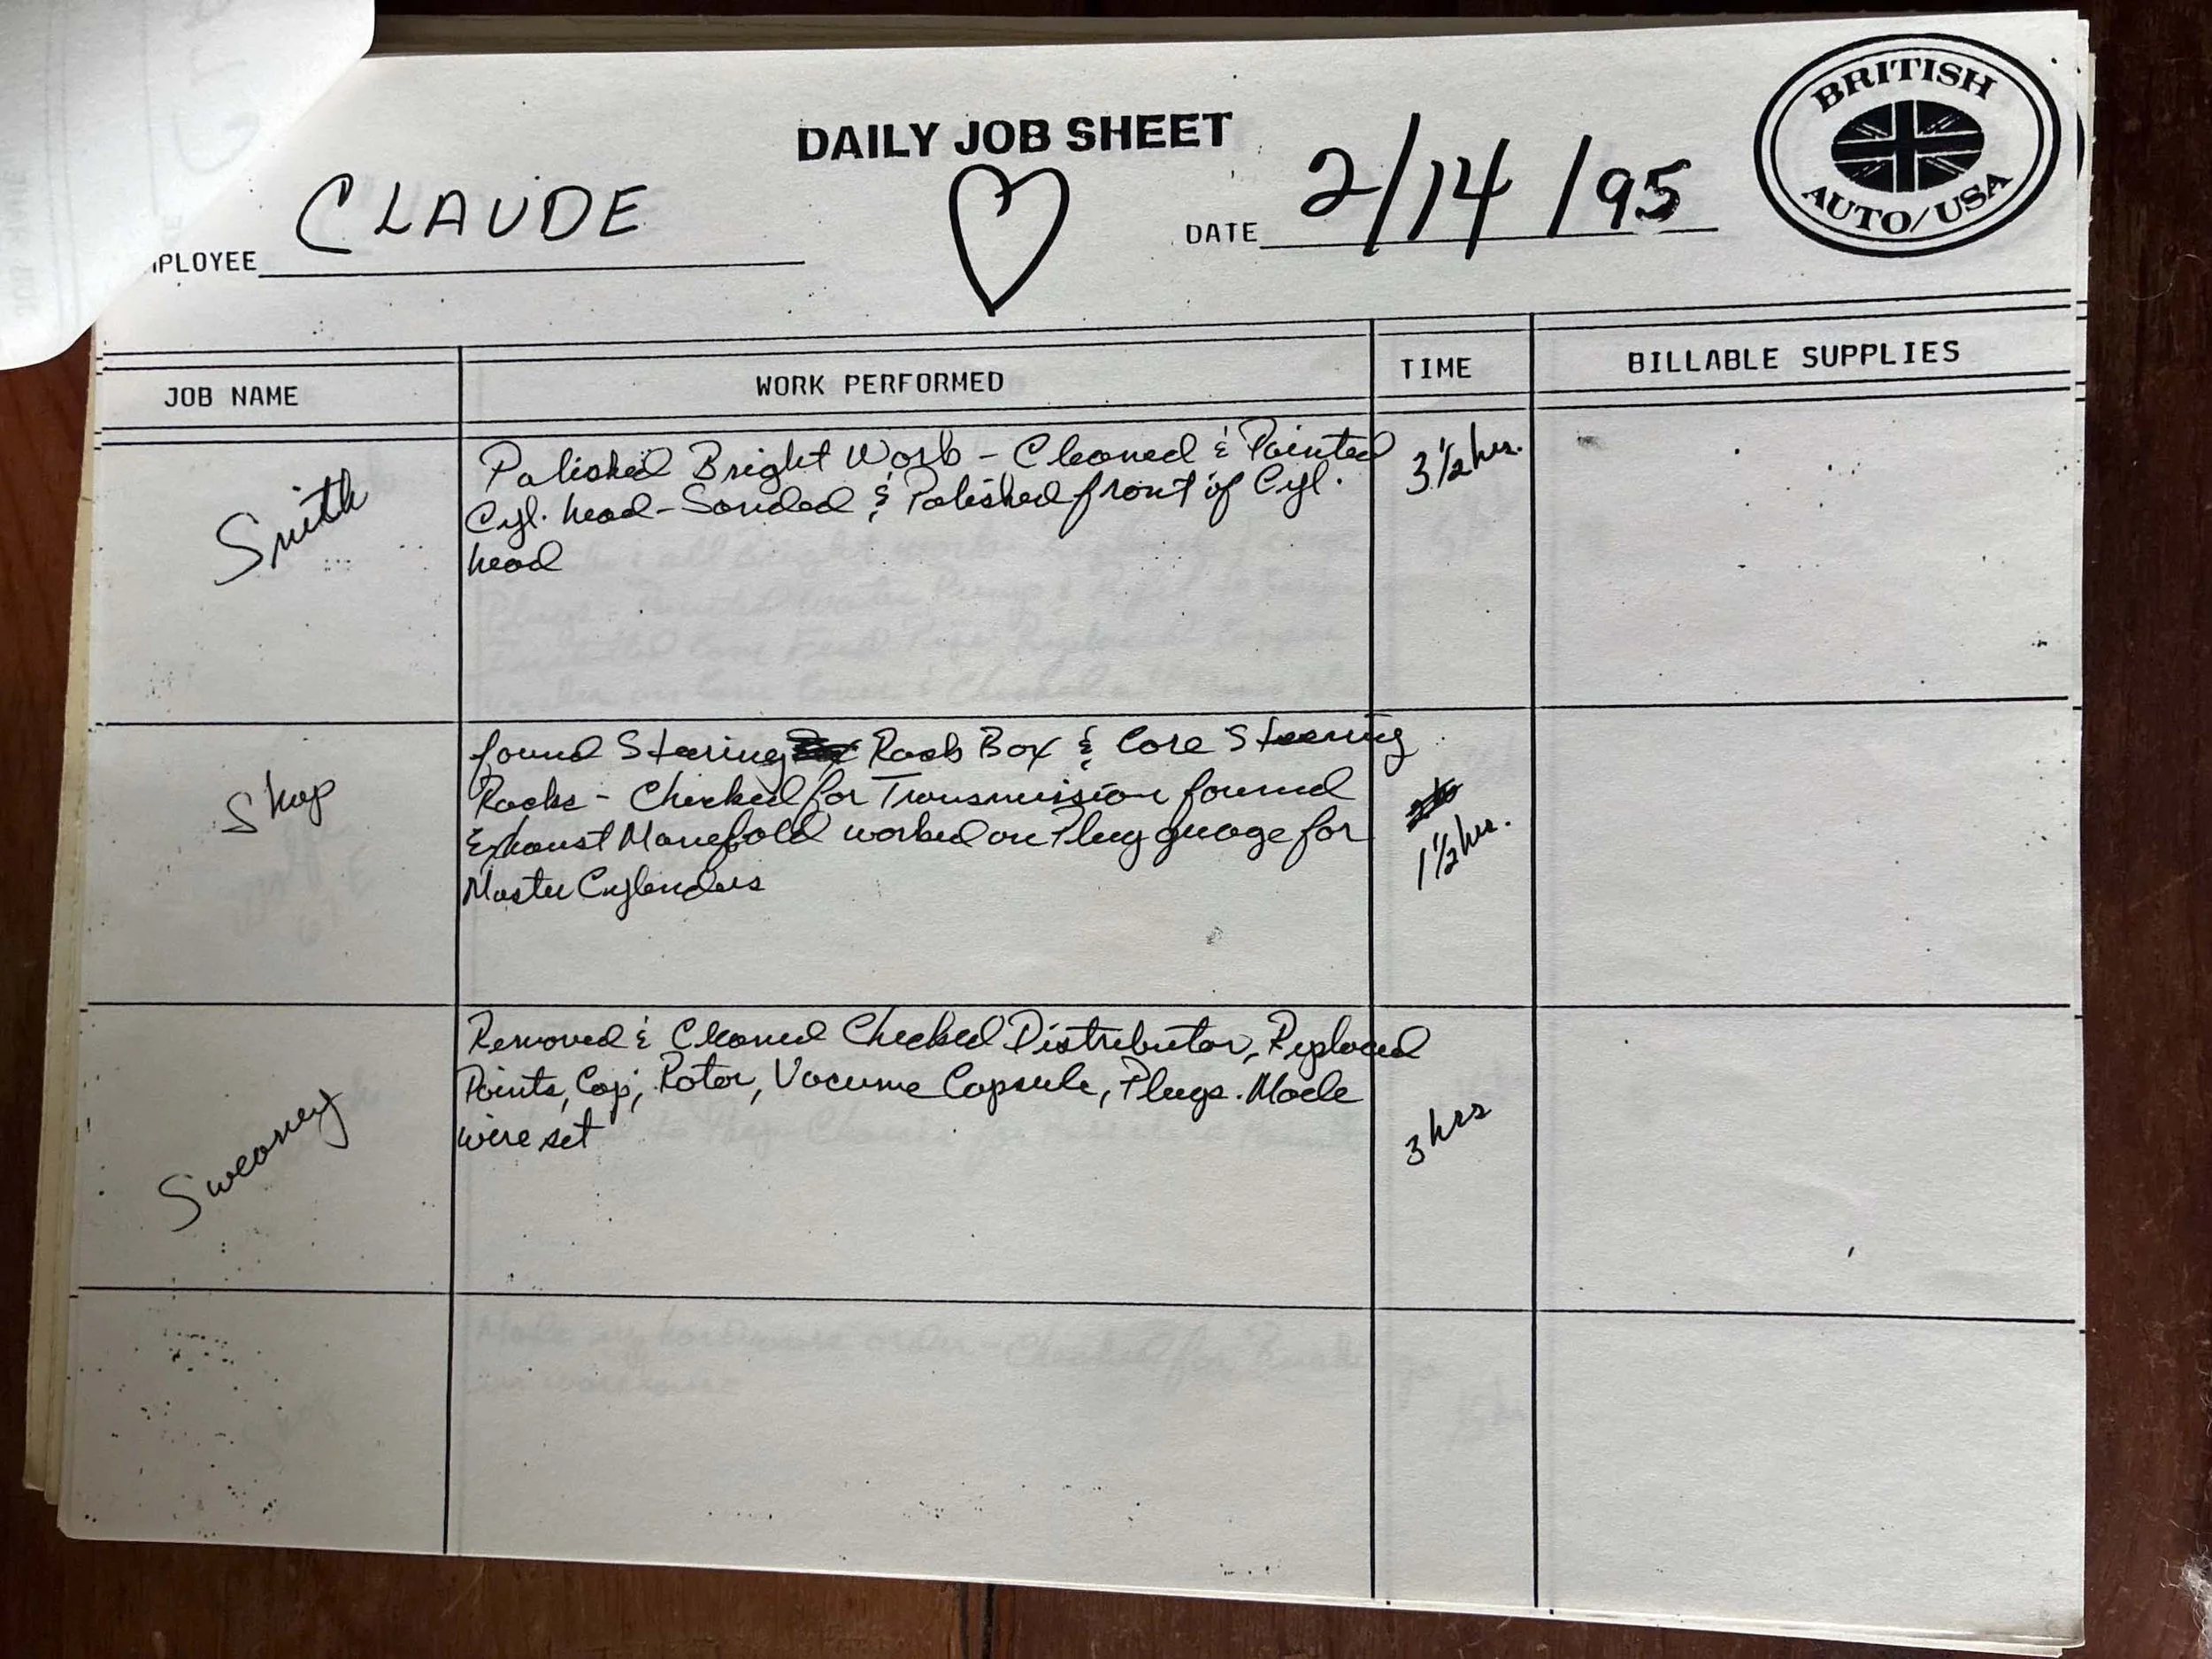 DAILY JOB SHEET
BRITISH
AUTO/USA
MPLOYEE CLAUDE
DATE 2/14/95
JOB NAME WORK PERFORMED TIME BILLABLE SUPPLIES
Smith
Polished Bright Work - Cleaned & Painted
Cyl. head - Sanded & Polished front of Cyl.
head
3 1/2 hrs.
Shop
found Steering Rack Box & Core Steering
Racks - Checked for Transmission found
Exhaust Manefold worked on Plug guage for
Master Cylenders
1 1/2 hr.
Sweaney
Removed & Cleaned Checked Distributor, Replaced
Points, Cap, Rotor, Vacume Capsule, Plugs. Made
wire set
3 hrs